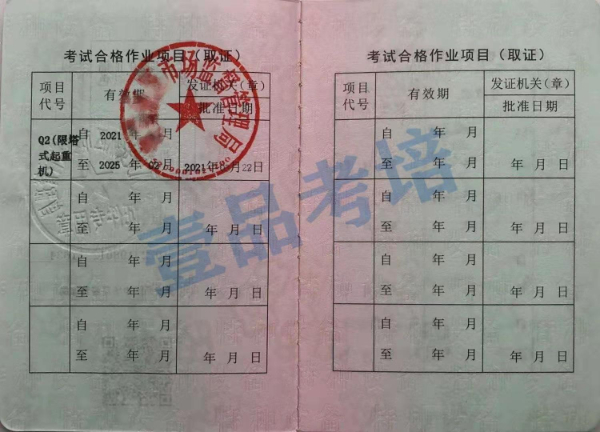 考试合格作业项目（取证）
项目代号
有效期
发证机关（章）
批准日期
Q2(限塔式起重机)
自 2021 年 月
至 2025 年 02 月
2021年 月 22日
自 年 月
至 年 月
年 月 日
自 年 月
至 年 月
年 月 日
自 年 月
至 年 月
年 月 日
市场监督管理局
考试合格作业项目（取证）
项目代号
有效期
发证机关（章）
批准日期
自 年 月
至 年 月
年 月 日
自 年 月
至 年 月
年 月 日
自 年 月
至 年 月
年 月 日
自 年 月
至 年 月
年 月 日
壹品考培